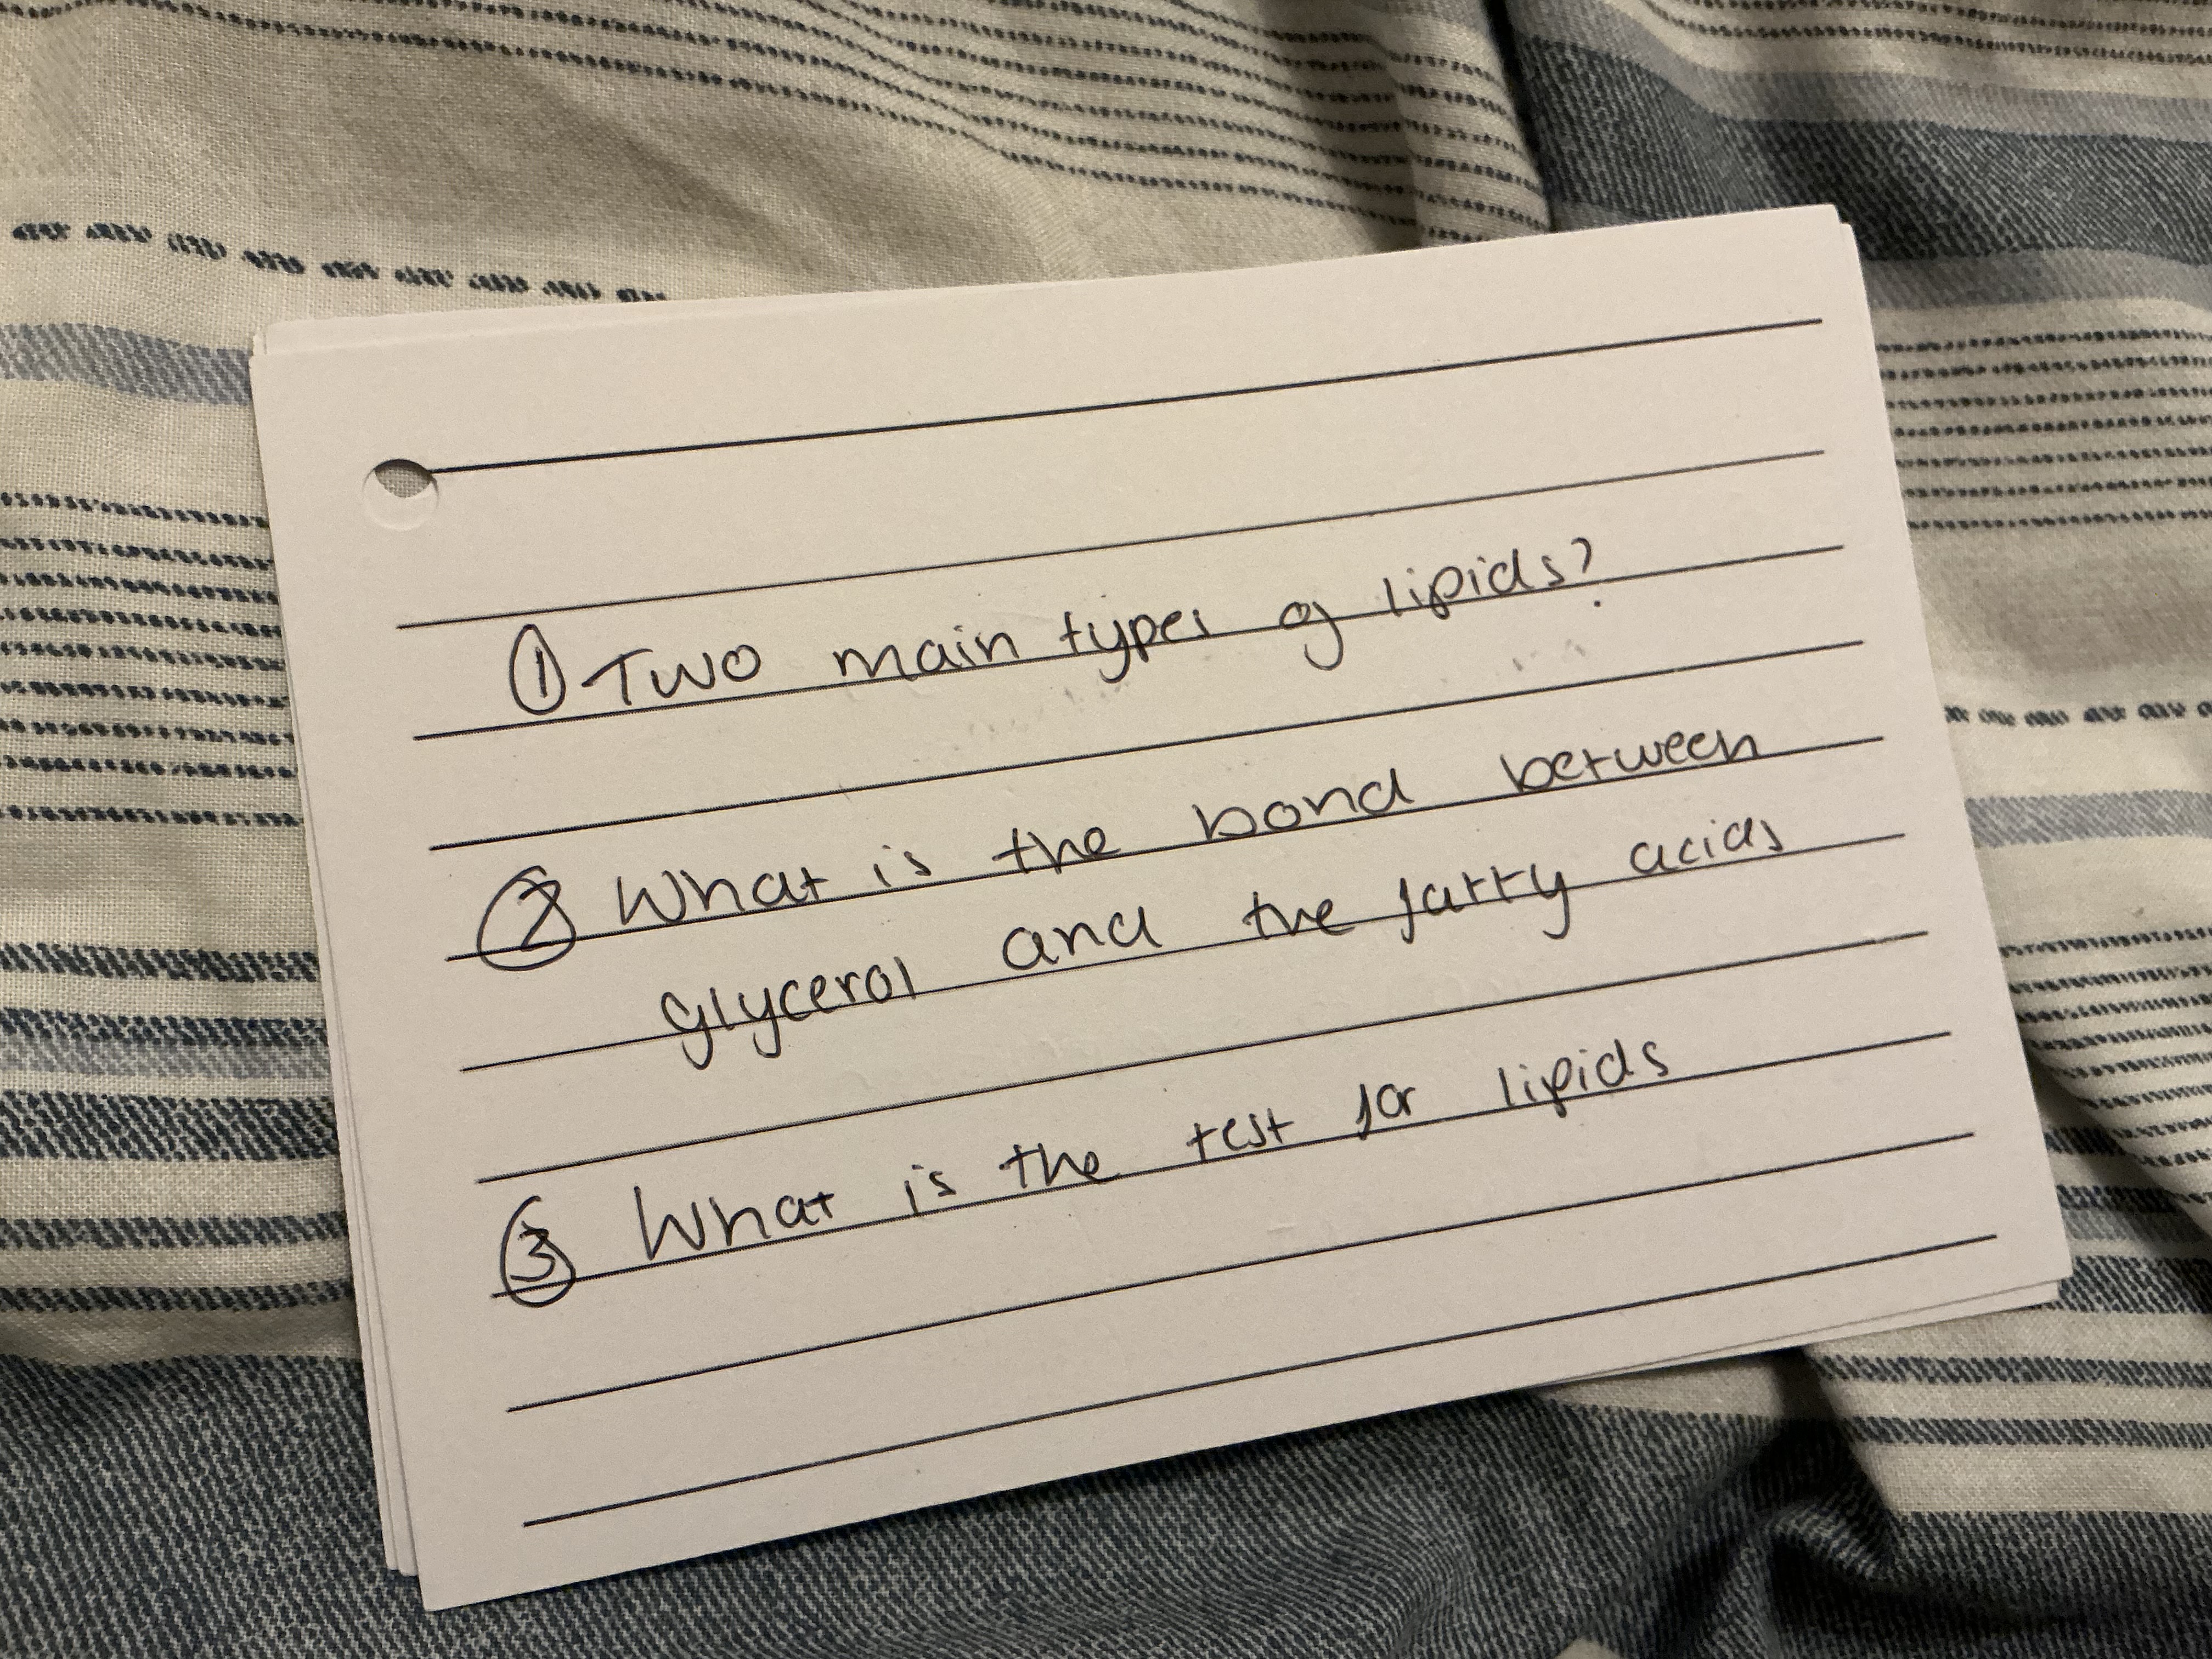 ① Two main types of lipids?
② What is the bond between
glycerol and the fatty acids
③ What is the test for lipids